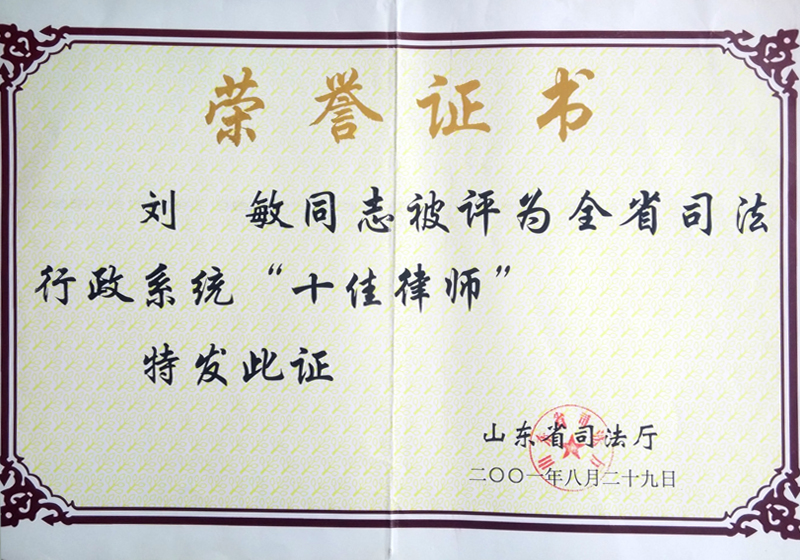 荣誉证书
刘 敏同志被评为全省司法
行政系统“十佳律师”
特发此证
山东省司法厅
二〇〇一年八月二十九日